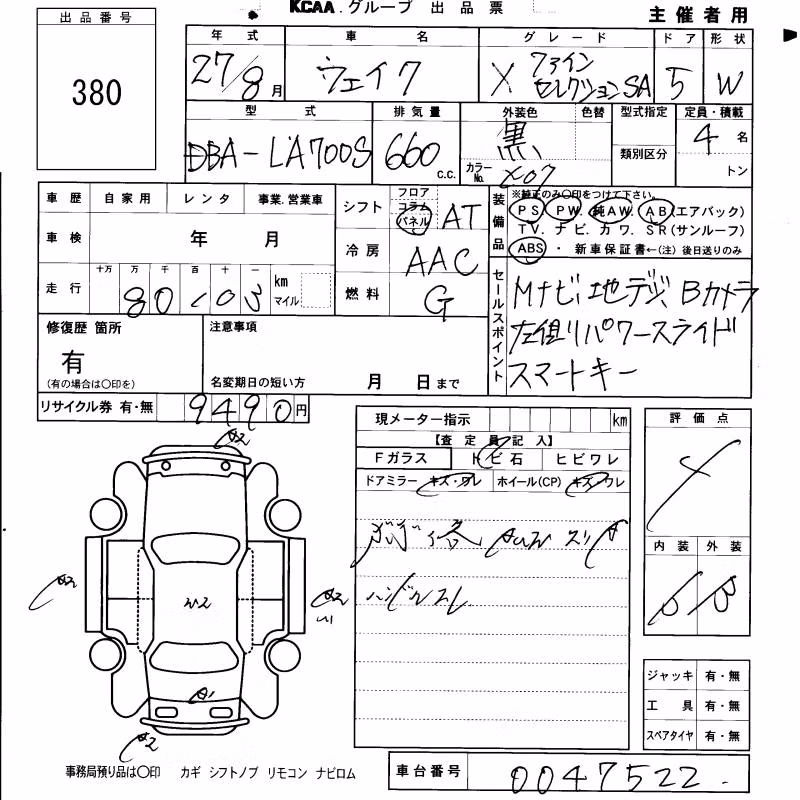 KCAA.グループ 出品票
主催者用
出品番号
380
年式 車名 グレード ドア 形状
27/8月 ウェイク X ファインセレクションSA 5 W
型式 排気量 外装色 色替 型式指定 定員・積載
DBA-LA700S 660 c.c. 黒 カラーNo. X07 類別区分 4名 トン
車歴 自家用 レンタ 事業.営業車
車検 年 月
十万 万 千 百 十 一
走行 80103 km マイル
シフト フロア コラム パネル AT
冷房 AAC
燃料 G
装備品 ※純正のみ〇印をつけて下さい。
PS. PW. 純AW. AB(エアバック)
TV. ナビ. カワ. SR(サンルーフ)
ABS ・ 新車保証書←(注) 後日送りのみ
セールスポイント
Mナビ、地デジ、Bカメラ
左側パワースライド
スマートキー
修復歴 箇所
有
(有の場合は〇印を)
注意事項
名変期日の短い方 月 日まで
リサイクル券 有・無 9490円
現メーター指示 km
【査定員記入】
Fガラス トビ石 ヒビワレ
ドアミラー キズ・ワレ ホイール(CP) キズ・ワレ
ハンドルスレ
評価点
4
内装 外装
B B
A2
A2
A2
W2
A1
A2
ジャッキ 有・無
工具 有・無
スペアタイヤ 有・無
事務局預り品は〇印 カギ シフトノブ リモコン ナビロム
車台番号 0047522